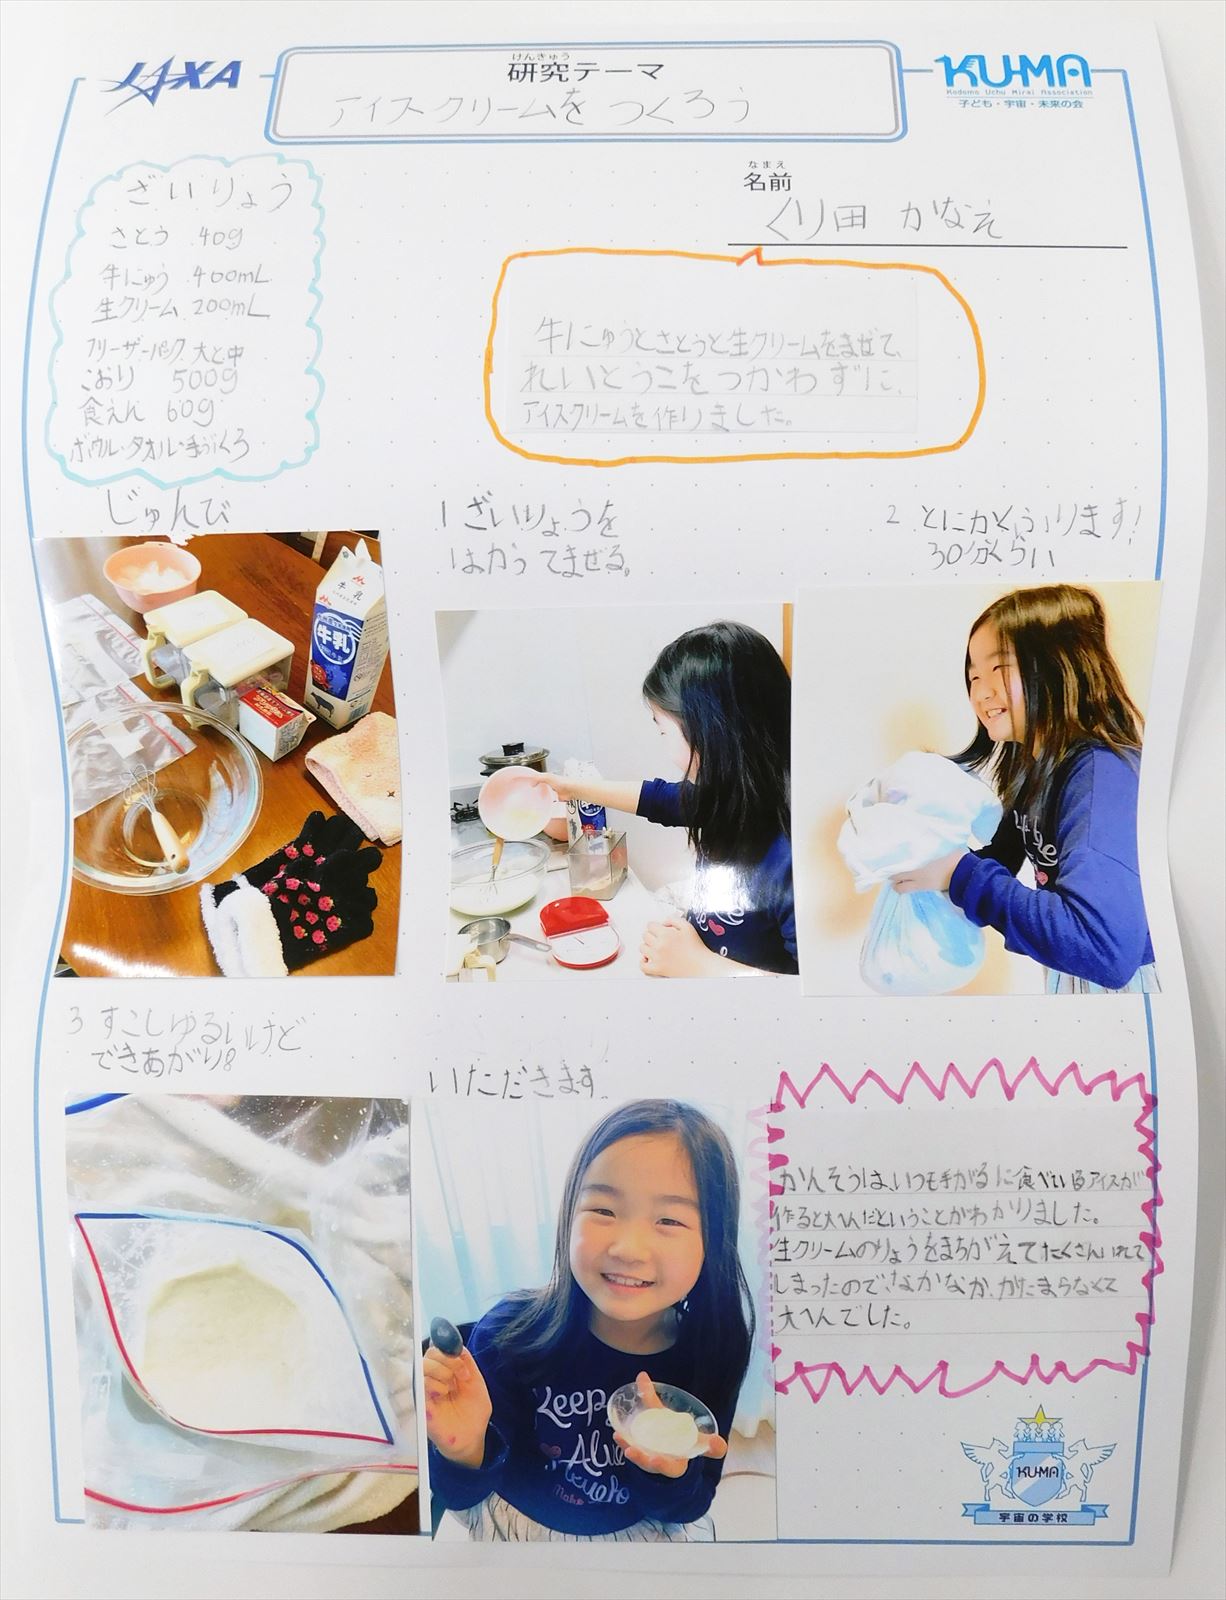 JAXA
けんきゅう
研究テーマ
アイスクリームを つくろう
KU-MA
Kodomo Uchu Mirai Association
子ども・宇宙・未来の会
なまえ
名前
くり田 かなえ
ざいりょう
さとう 40g
牛にゅう 400mL
生クリーム 200mL
フリーザーパック 大と中
こおり 500g
食えん 60g
ボウル・タオル・手ぶくろ
牛にゅうとさとうと生クリームをまぜて、
れいとうこをつかわずに、
アイスクリームを作りました。
じゅんび
1 ざいりょうを
はかってまぜる。
2 とにかくふります!
30分くらい
牛乳
牛乳
3 すこしゆるいけど
できあがり
いただきます
Keep
かんそうは、いつも手がるに食べているアイスが
作ると大へんだということがわかりました。
生クリームのりょうをまちがえてたくさんいれて
しまったので、なかなか、かたまらなくて
大へんでした。
KU-MA
宇宙の学校